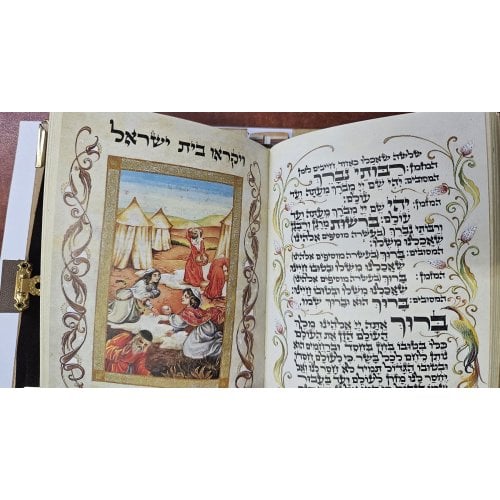 ויקראו בית ישראל
שלשה שאכלו כאחד חייבים לזמן
המזמן: רבותי נברך
המסובים: יהי שם יי מברך מעתה ועד
עולם:
המזמן: יהי שם יי מברך מעתה ועד
עולם: ברשות
ורבותי נברך (בעשרה מוסיפים אלהינו)
שאכלנו משלו:
המסובים: ברוך (בעשרה מוסיפים אלהינו)
שאכלנו משלו ובטובו חיינו
המזמן: ברוך (בעשרה מוסיפים אלהינו)
שאכלנו משלו ובטובו חיינו:
המסובים: ברוך הוא וברוך שמו.
ברוך אתה יי אלהינו מלך
העולם הזן את העולם
כלו בטובו בחן בחסד וברחמים הוא
נותן לחם לכל בשר כי לעולם חסדו
ובטובו הגדול תמיד לא חסר לנו ואל
יחסר לנו מזון לעולם ועד בעבור